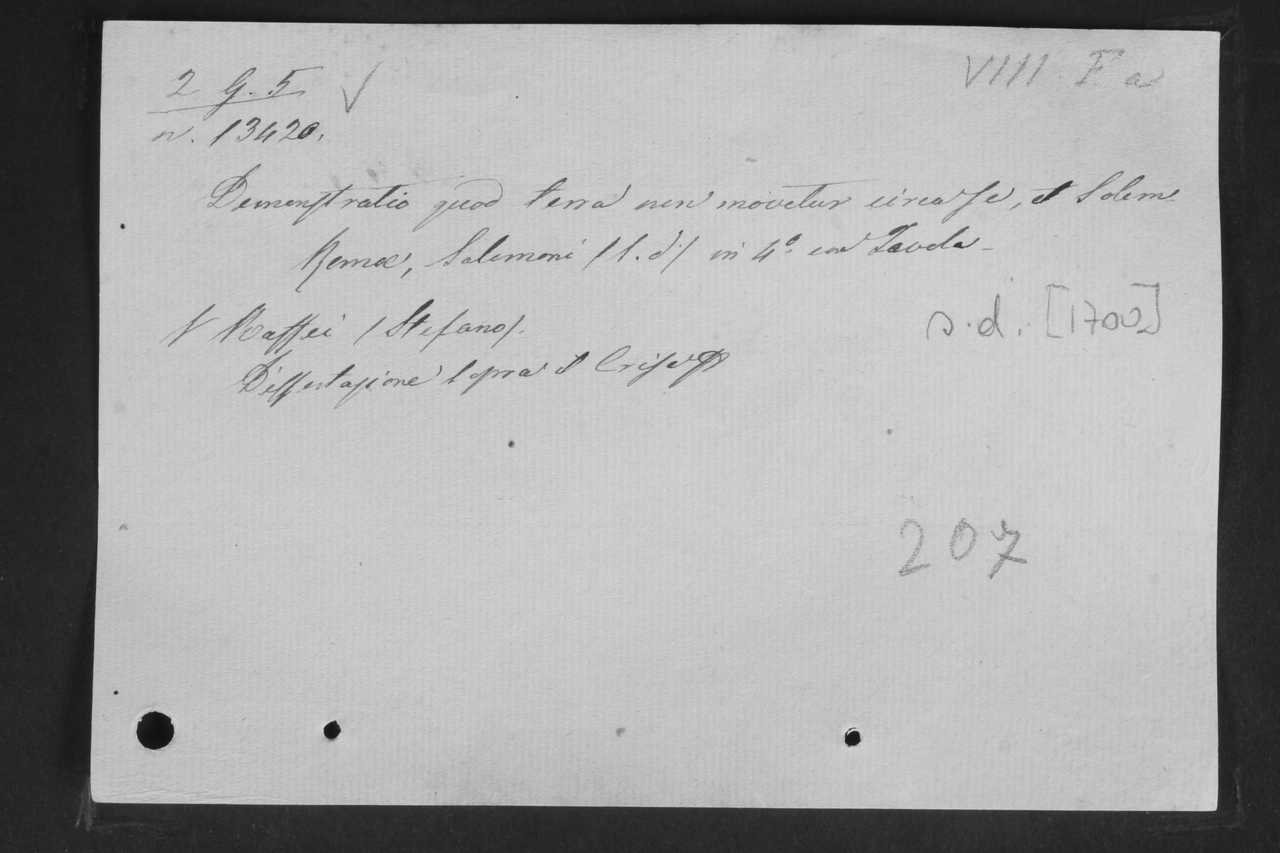 2 G. 5
VIII F a
n. 13420.
Demonstratio quod terra non movetur circa se, et Solem
Romae, Salomoni (s. d.) in 4º. con Tavola
s.d. [1700]
V Maffei (Stefano).
Dissertazione sopra
207